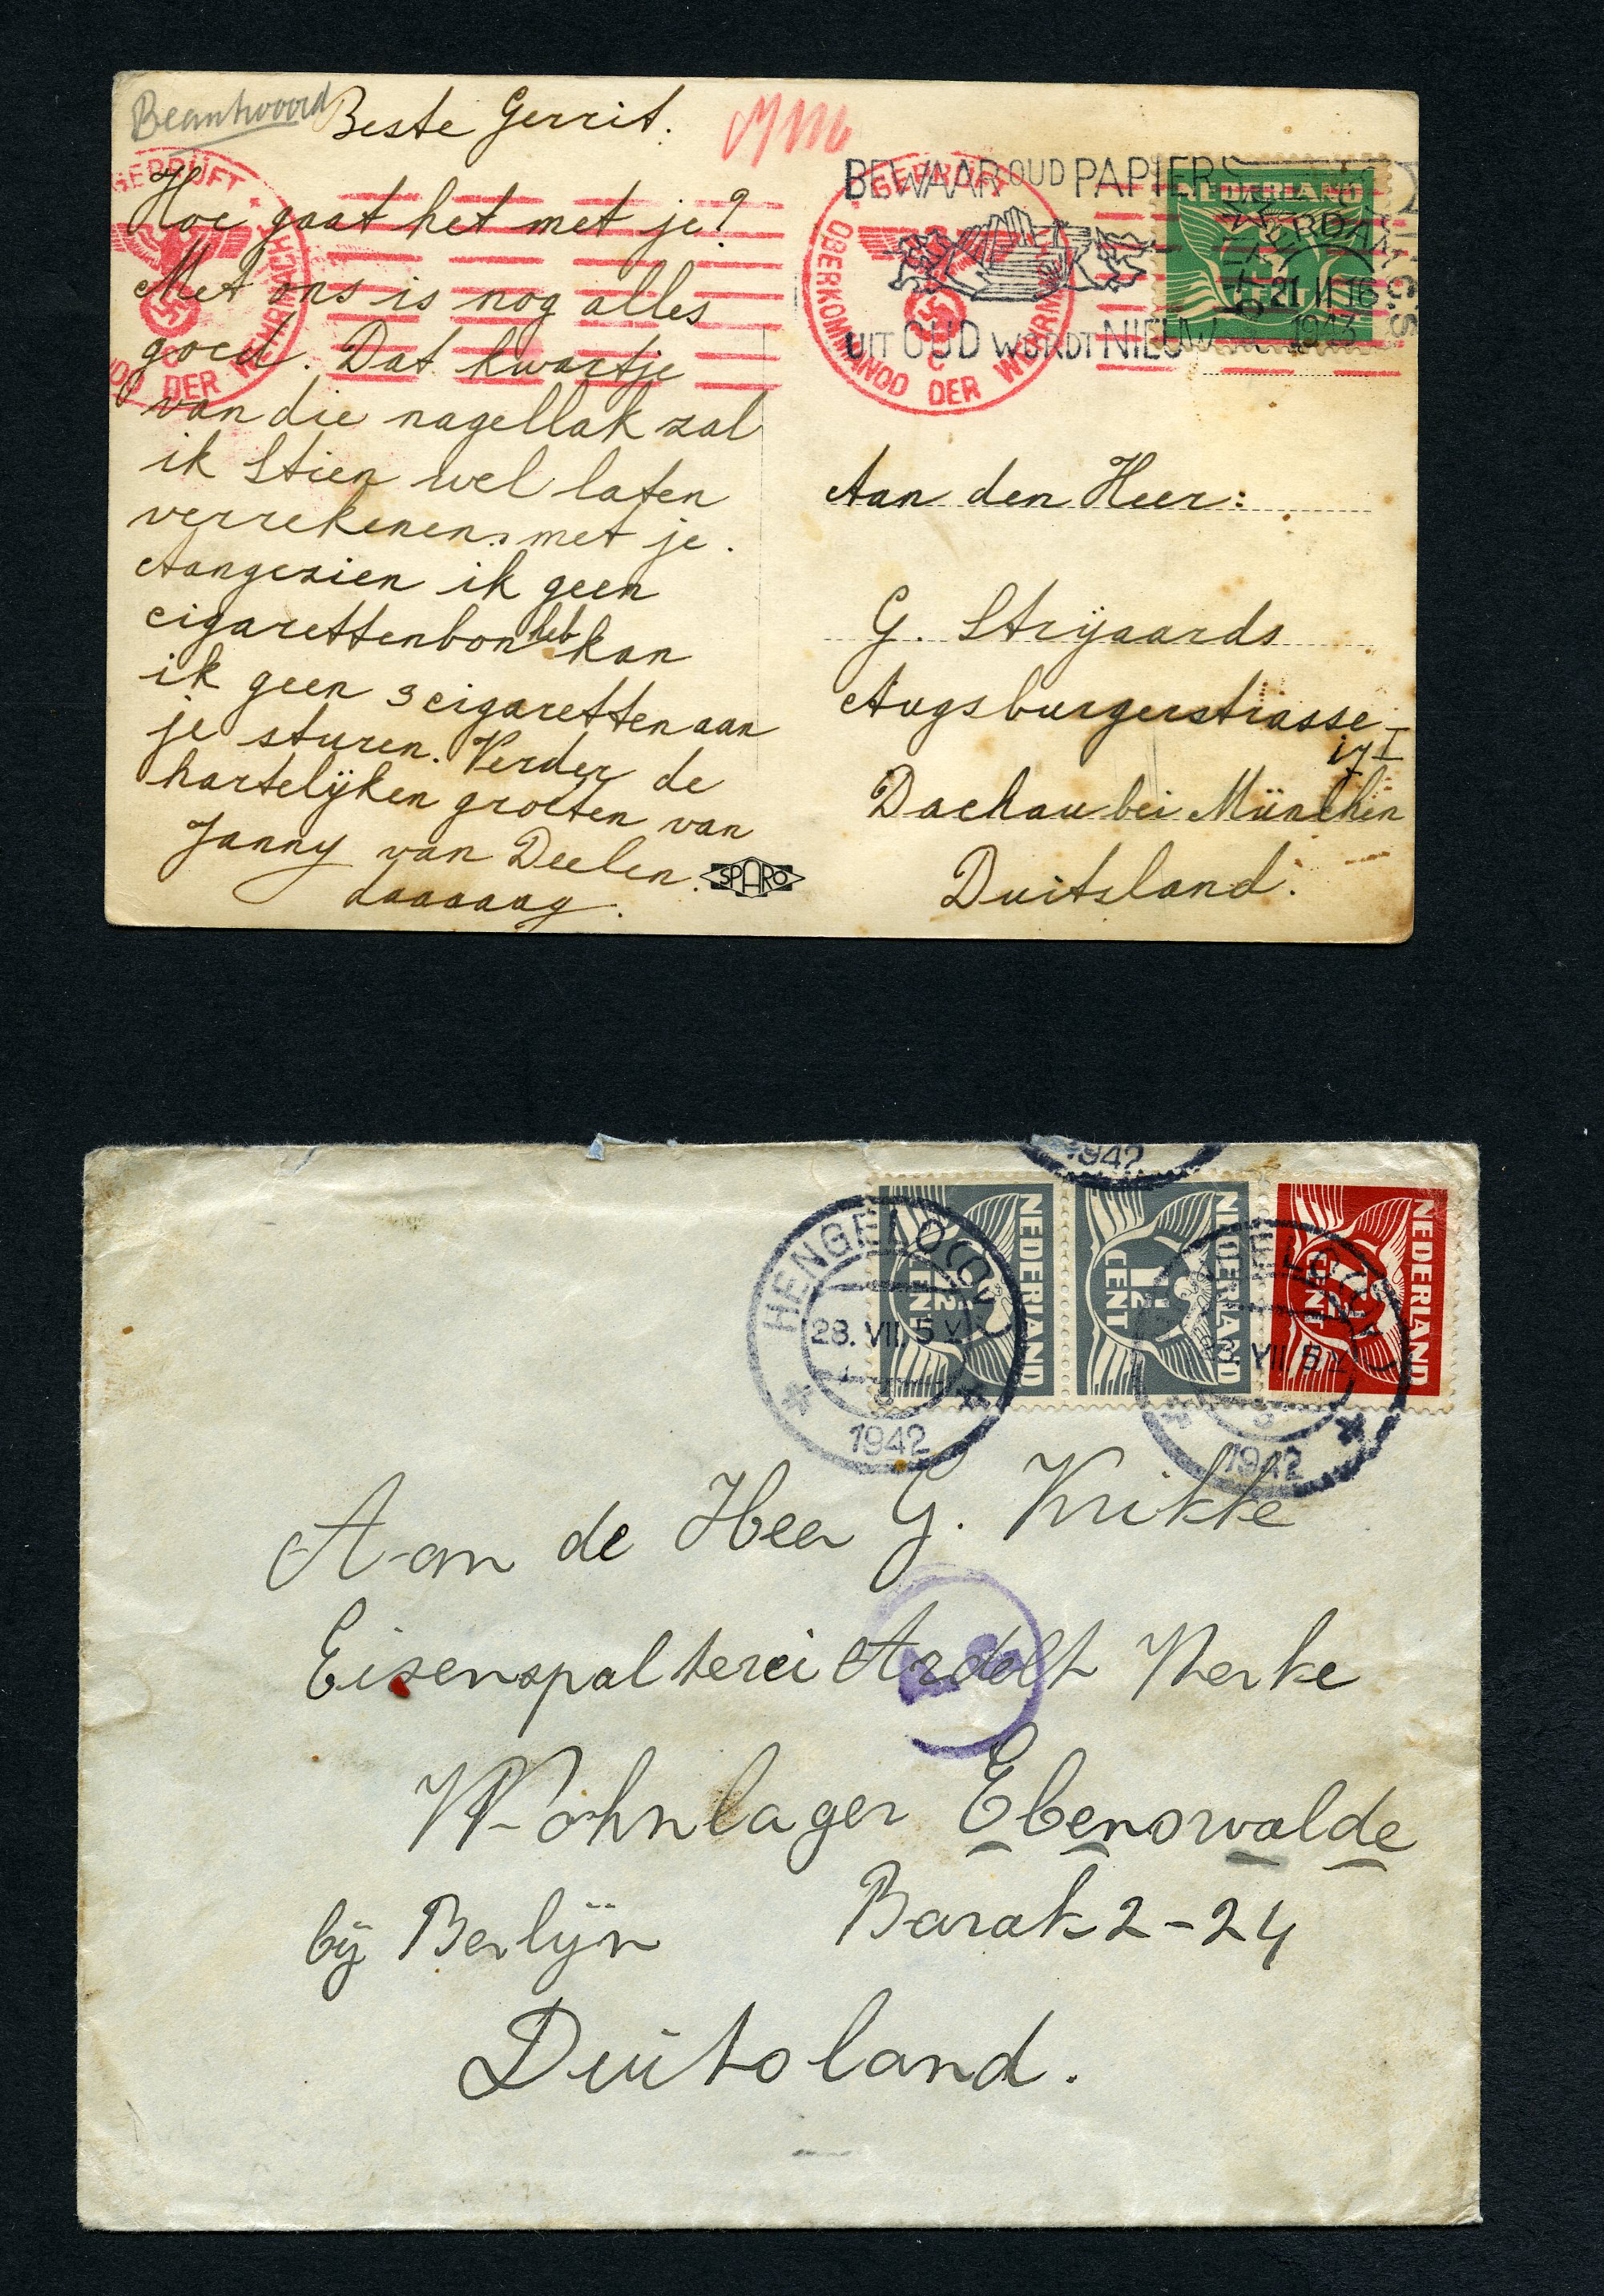 Beantwoord
Beste Gerrit.
Hoe gaat het met je?
Met ons is nog alles
goed. Dat kwartje
van die nagellak zal
ik Stien wel laten
verrekenen met je.
Aangezien ik geen
cigarettenbon heb kan
ik geen 3 cigaretten aan
je sturen. Verder de
hartelijken groeten van
Janny van Deelen.
daaaaag.
SPARO
GEPRÜFT
OBERKOMMANDO DER WEHRMACHT
GEPRÜFT
OBERKOMMANDO DER WEHRMACHT
BEWAAR OUD PAPIER
UIT OUD WORDT NIEUW
NEDERLAND
21 II 16
1943
Aan den Heer:
G. Strijaards
Augsburgerstrasse
17 I
Dachau bei München
Duitsland.
1942
HENGELO (OV)
28. VII. 5 V
1942
NEDERLAND
1½
CENT
NEDERLAND
1½
CENT
NEDERLAND
CENT
VII 5 V
1942
Aan de Heer G. Krikke
Eisenspalterei Ardelt Werke
Wohnlager Eberswalde
bij Berlijn Barak 2-24
Duitsland.